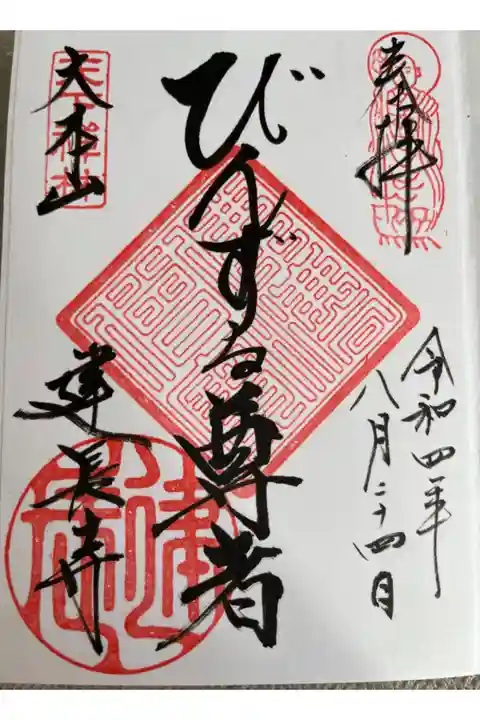 奉拝
令和四年
八月二十四日
びんずる尊者
天下禅林
大本山
建長寺